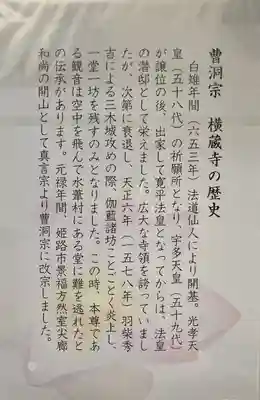 曹洞宗 横蔵寺の歴史
白雉年間(六五三年)法道仙人により開基。光孝天
皇(五十八代)の祈願所となり、宇多天皇(五十九代)
が譲位の後、出家して寛平法皇となってからは、法皇
の潜邸として栄えました。広大な寺領を誇っていまし
たが、次第に衰退し、天正六年(一五七八年)羽柴秀
吉による三木城攻めの際、伽藍諸坊ことごとく炎上し、
一堂一坊を残すのみとなりました。この時、本尊であ
る観音は空中を飛んで水葦村にある堂に難を逃れたと
の伝承があります。元禄年間、姫路市景福方然室尖廊
和尚の開山として真言宗より曹洞宗に改宗しました。